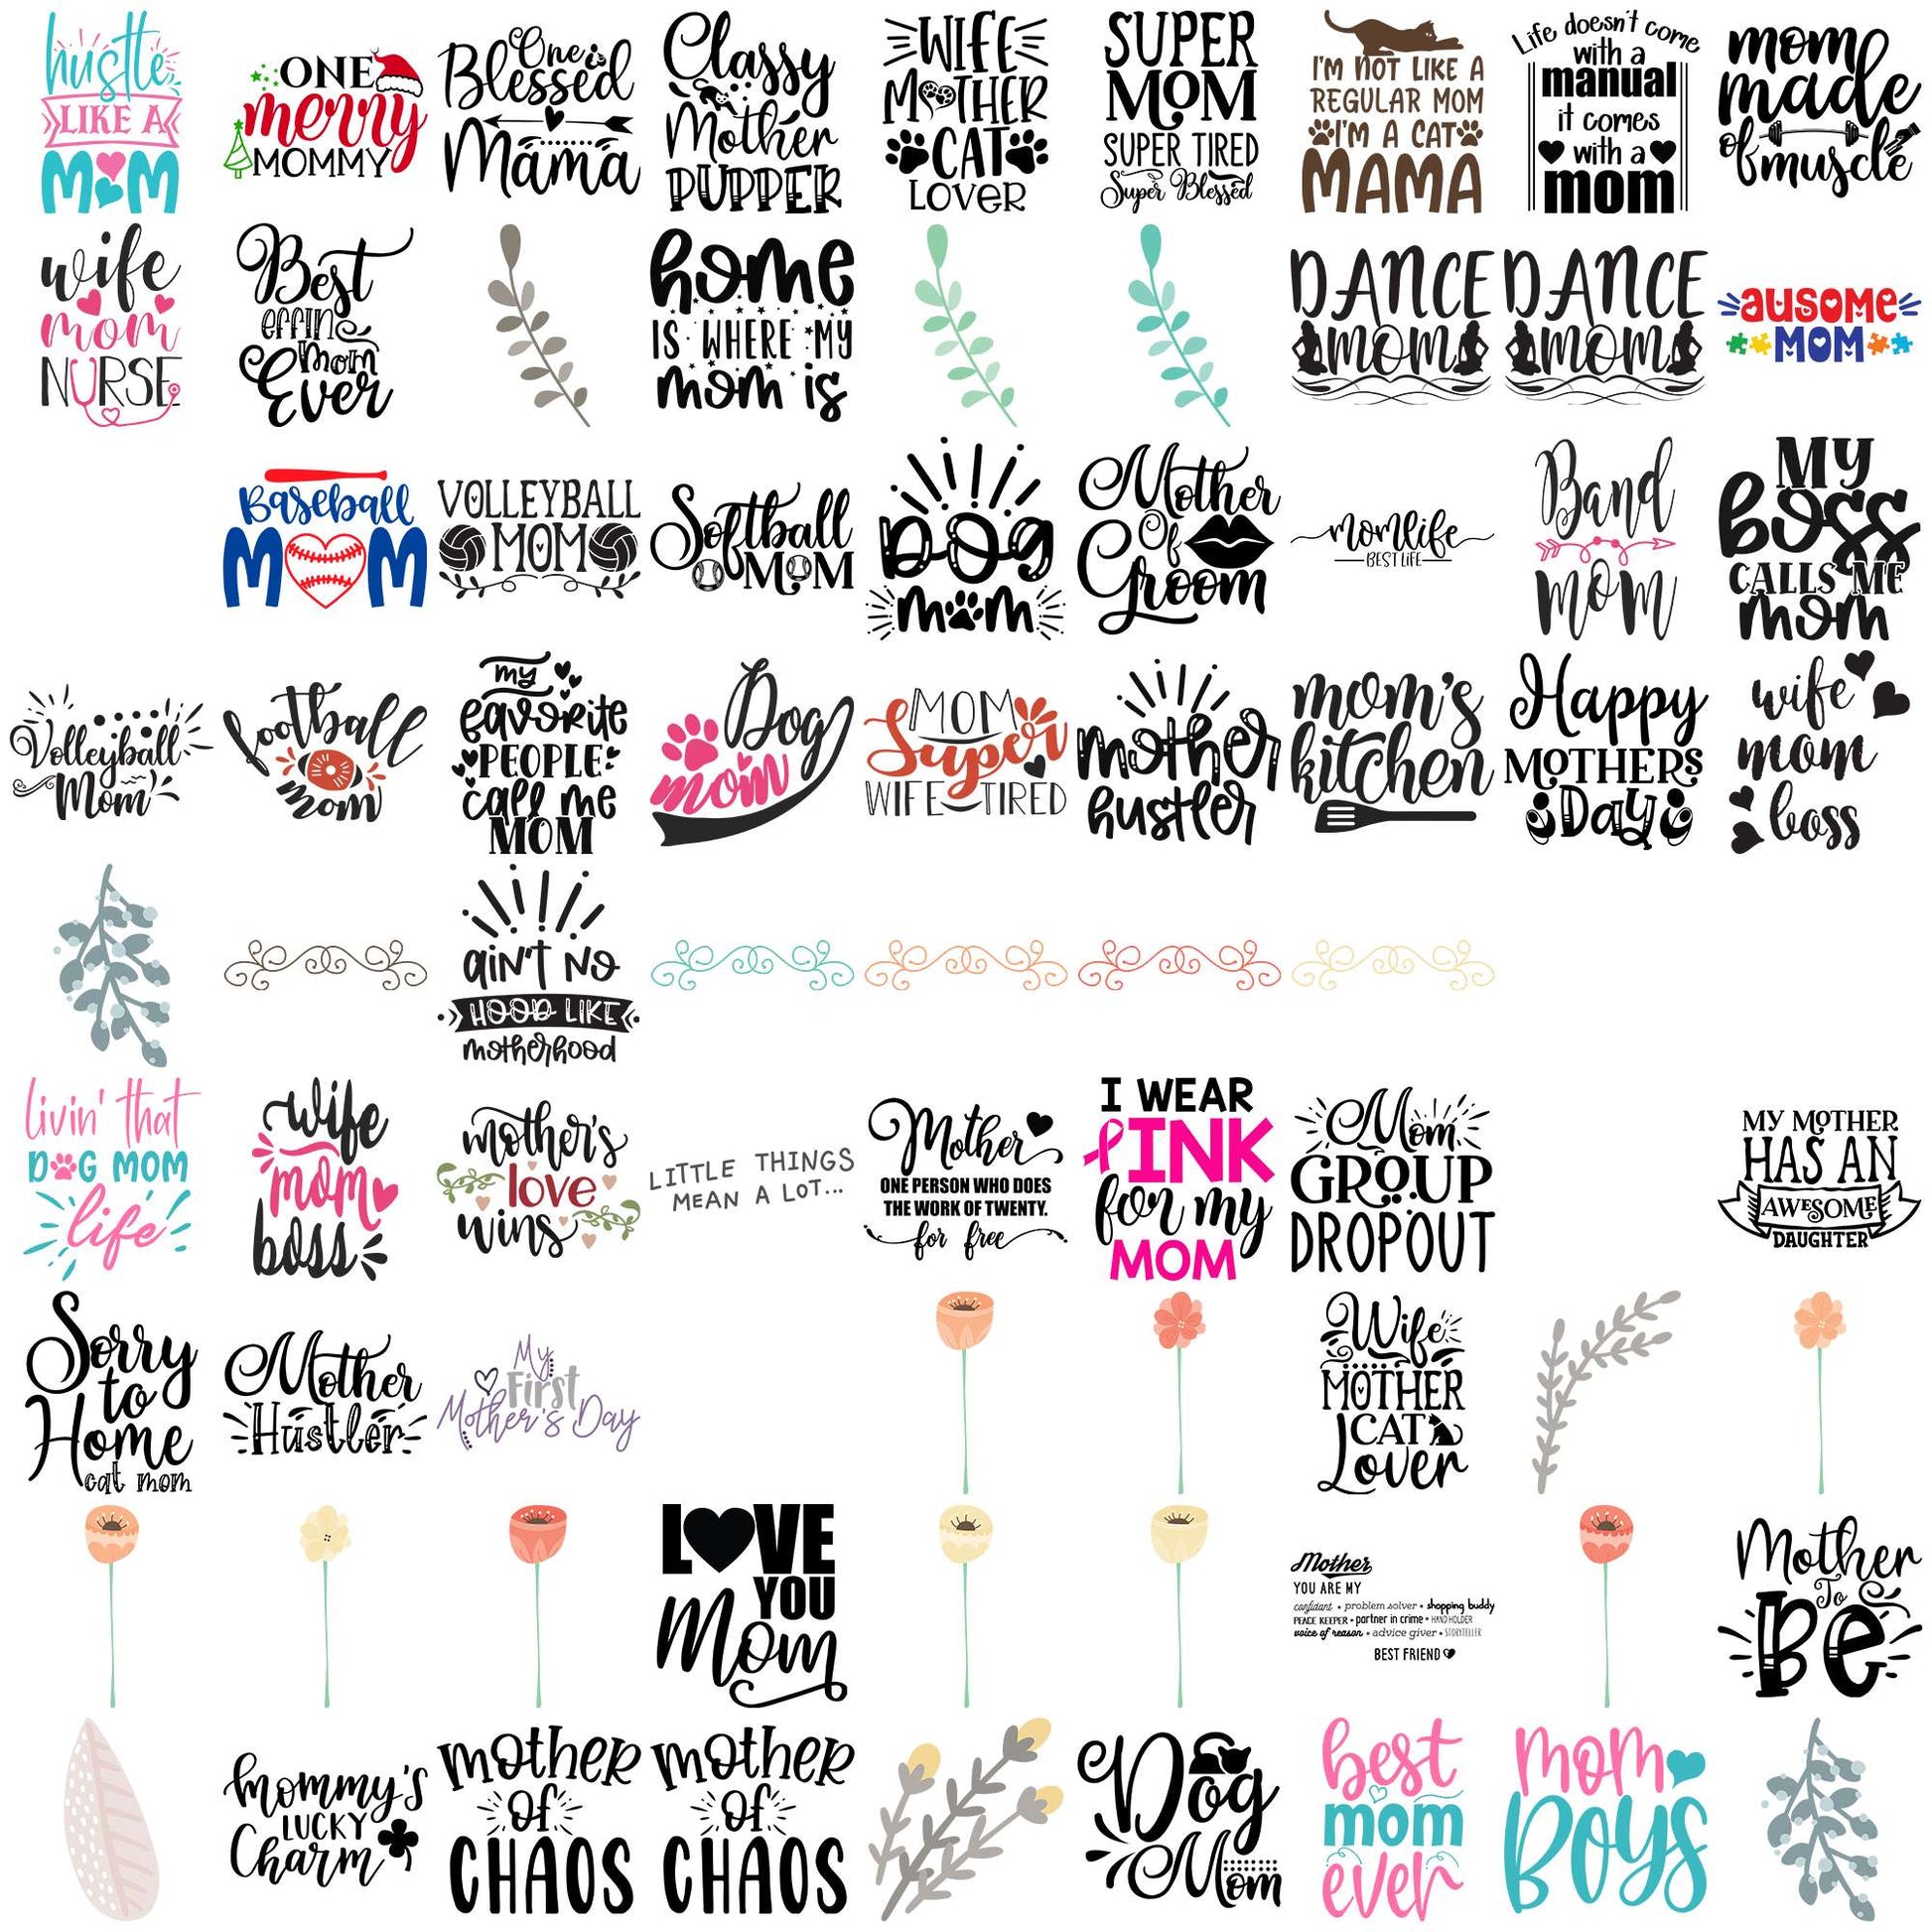 hustle
LIKE A
MOM
ONE
merry
MOMMY
One
Blessed
Mama
Classy
Mother
PUPPER
WIFE
MOTHER
CAT
LOVER
SUPER
MOM
SUPER TIRED
Super Blessed
I'M NOT LIKE A
REGULAR MOM
I'M A CAT
MAMA
Life doesn't come
with a
manual
it comes
with a
mom
mom
made
of muscle
wife
mom
NURSE
Best
effin
Mom
Ever
home
IS WHERE MY
mom is
DANCE
mom
DANCE
mom
AUSOME
MOM
Baseball
MOM
VOLLEYBALL
MOM
Softball
MOM
DOG
mom
Mother
Of
Groom
momlife
BEST LIFE
Band
mom
MY
boss
CALLS ME
mom
Volleyball
Mom
Football
mom
my
favorite
PEOPLE
call me
MOM
Dog
mom
MOM
Super
WIFE TIRED
mother
hustler
mom's
kitchen
Happy
MOTHERS
Day
wife
mom
boss
ain't no
HOOD LIKE
motherhood
livin' that
DOG MOM
life
wife
mom
boss
mother's
love
wins
LITTLE THINGS
MEAN A LOT...
Mother
ONE PERSON WHO DOES
THE WORK OF TWENTY.
for free
I WEAR
PINK
for my
MOM
Mom
GROUP
DROPOUT
MY MOTHER
HAS AN
AWESOME
DAUGHTER
Sorry
to
Home
cat mom
Mother
Hustler
My
First
Mother's Day
Wife
MOTHER
CAT
Lover
LOVE
YOU
Mom
Mother
YOU ARE MY
confidant • problem solver • shopping buddy
PEACE KEEPER • partner in crime • HAND HOLDER
voice of reason • advice giver • STORYTELLER
BEST FRIEND
Mother
To
Be
Mommy's
LUCKY
Charm
mother
of
CHAOS
mother
of
CHAOS
Dog
Mom
best
mom
ever
mom
Boys